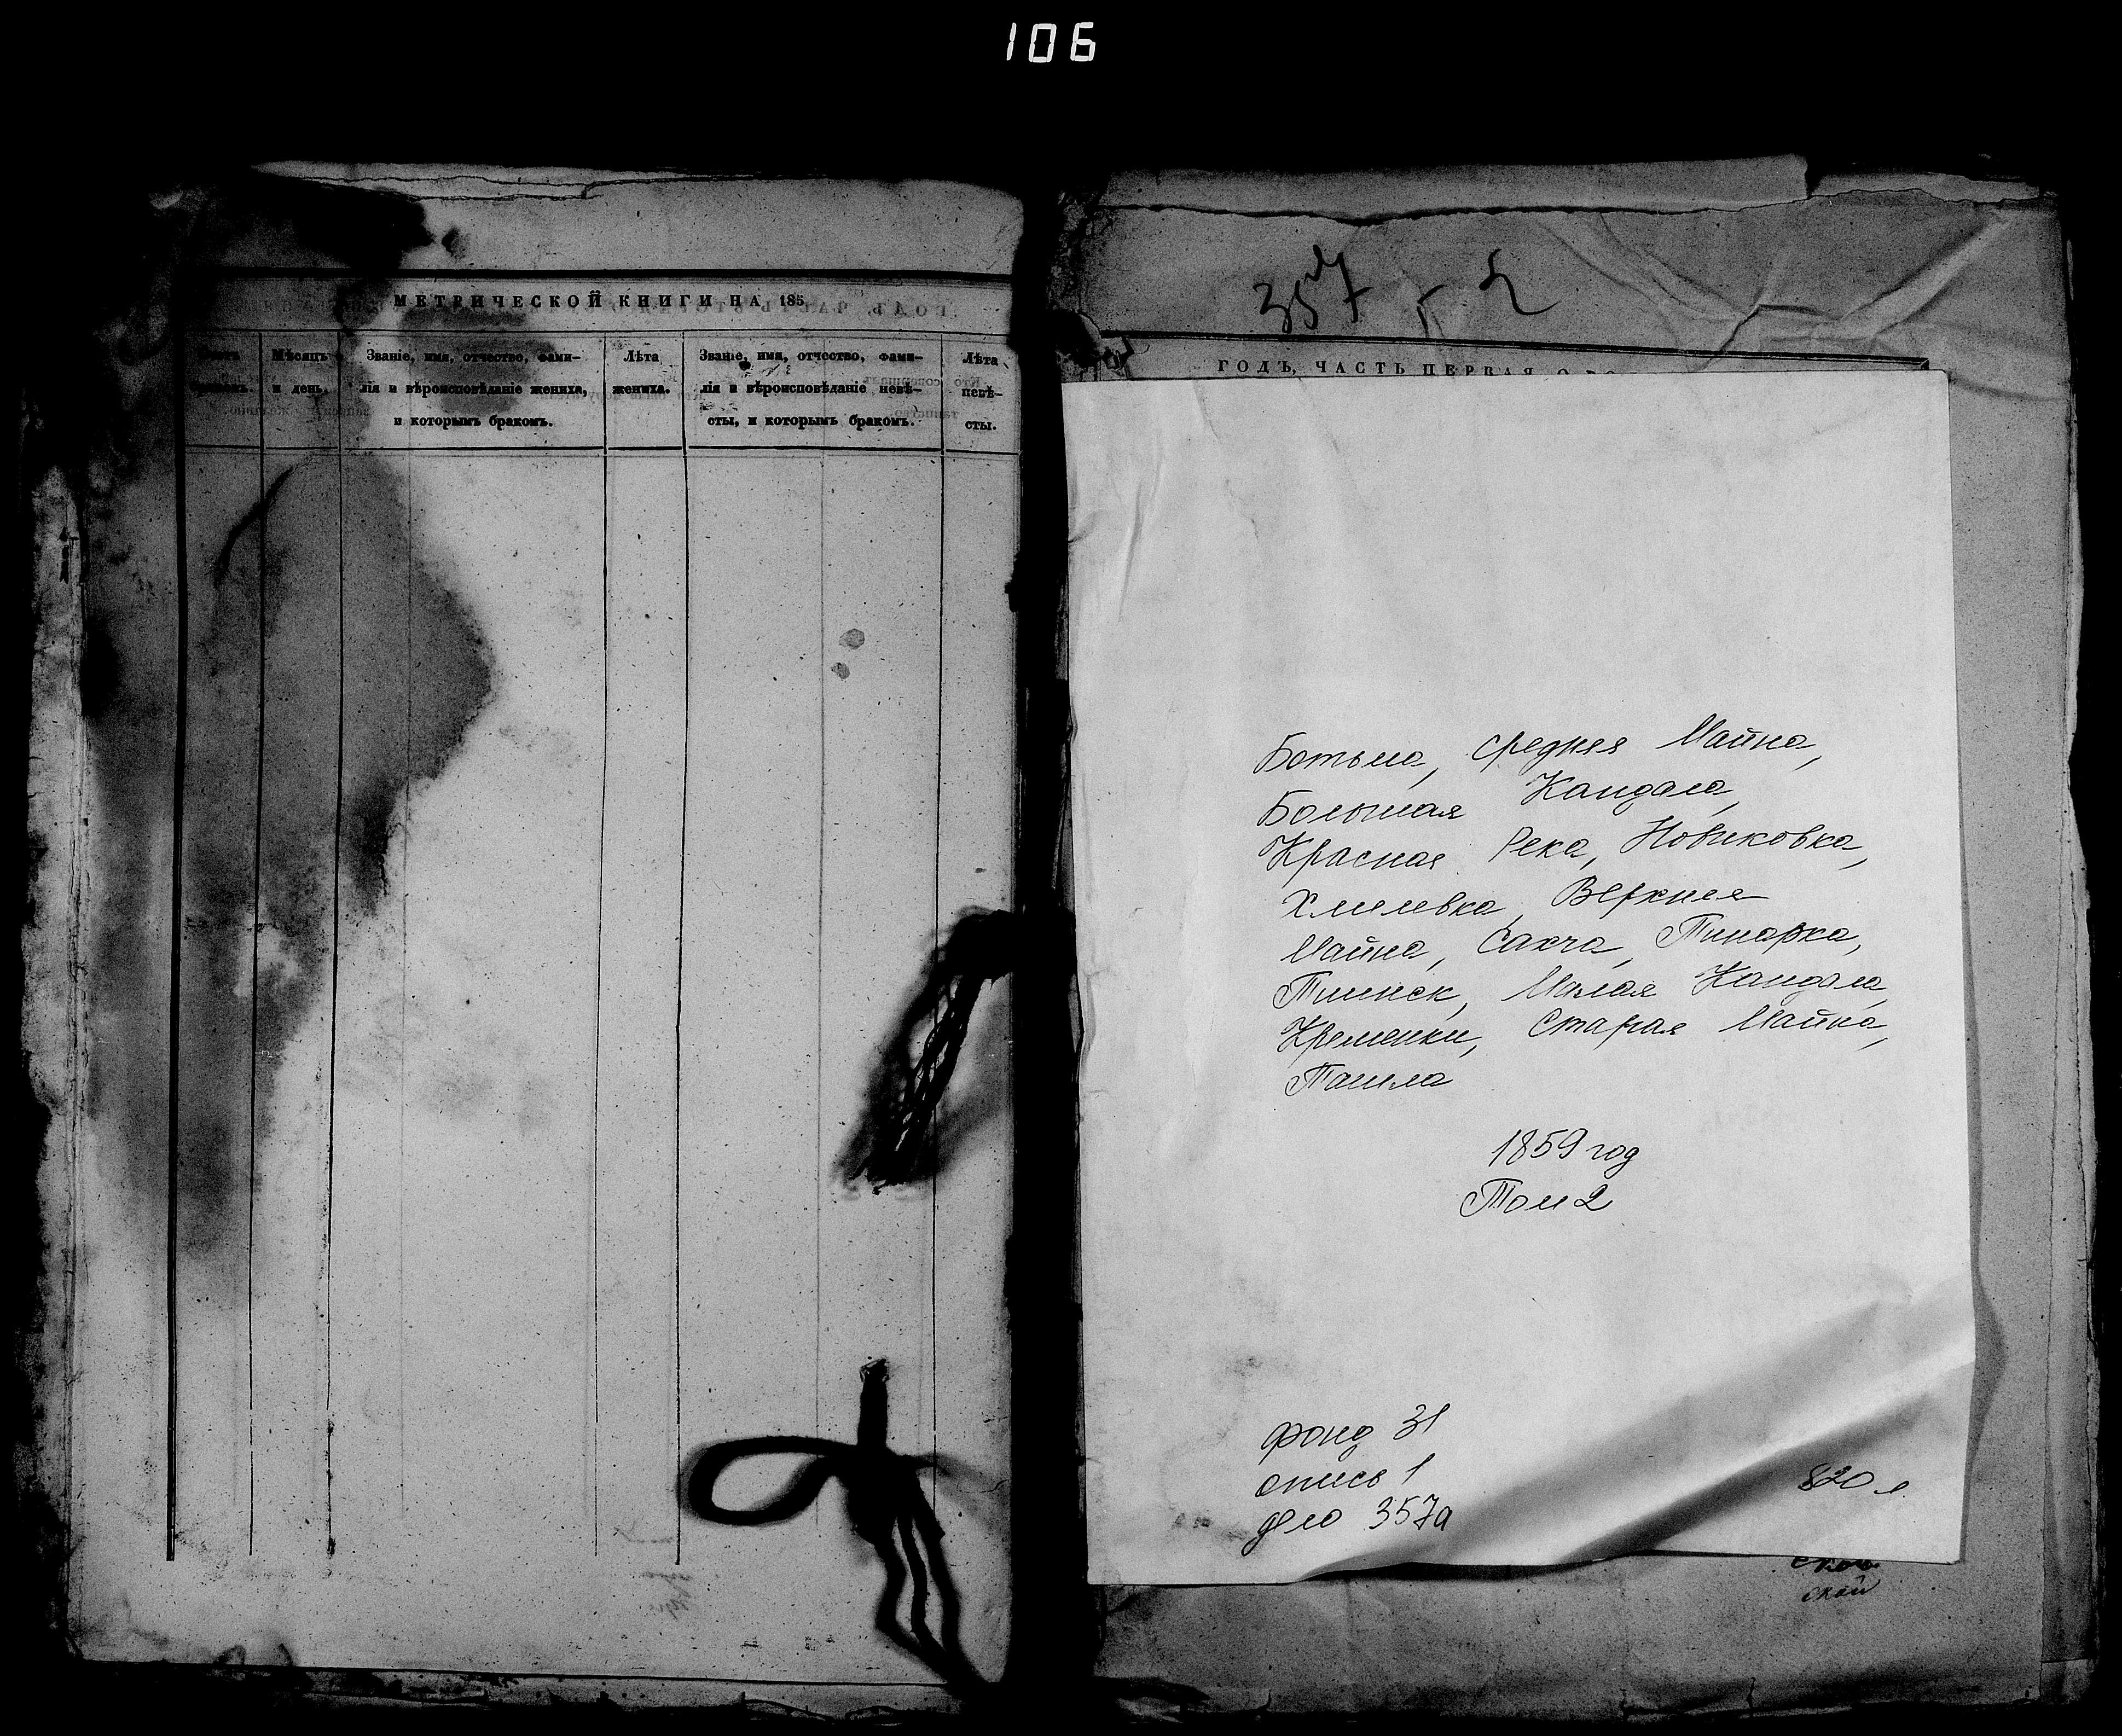 106
МЕТРИЧЕСКОЙ КНИГИ НА 185
Мѣсяцъ
и день.
Званіе, имя, отчество, фами-
лія и вѣроисповѣданіе жениха,
и которымъ бракомъ.
Лѣта
жениха.
Званіе, имя, отчество, фами-
лія и вѣроисповѣданіе невѣ-
сты, и которымъ бракомъ.
Лѣта
невѣ-
сты.
357 2
ГОДЪ, ЧАСТЬ ПЕРВАЯ, О
Ботьма, Средняя Майна,
Большая Кандала,
Красная Река, Новиковка,
Хмелевка, Верхняя
Майна, Сахча, Тинарка,
Тиинск, Малая Кандала,
Кременки, Старая Майна,
Ташла
1859 год
Том 2
фонд 31
опись 1
дело 357а
820 л
ской